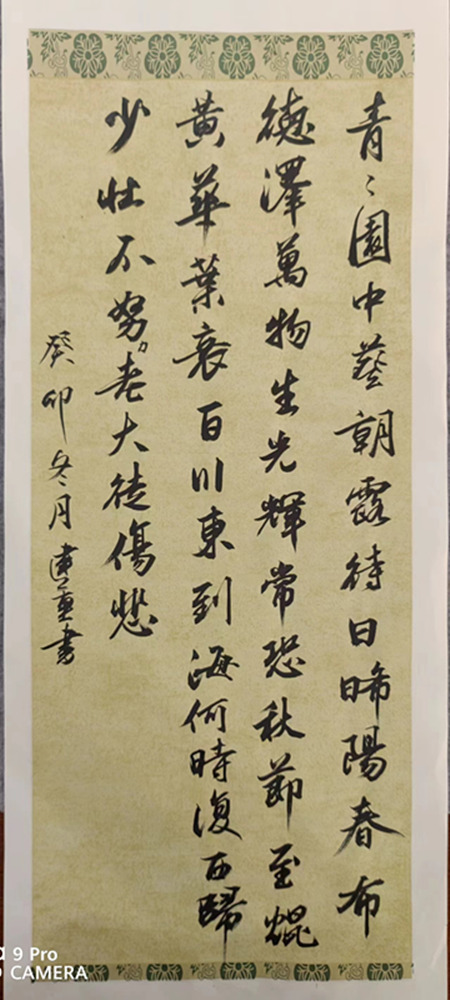 青〻園中葵朝露待日晞陽春布
德澤萬物生光輝常恐秋節至焜
黃華葉衰百川東到海何時復西歸
少壯不努〻老大徒傷悲
癸卯冬月建書
9 Pro
CAMERA